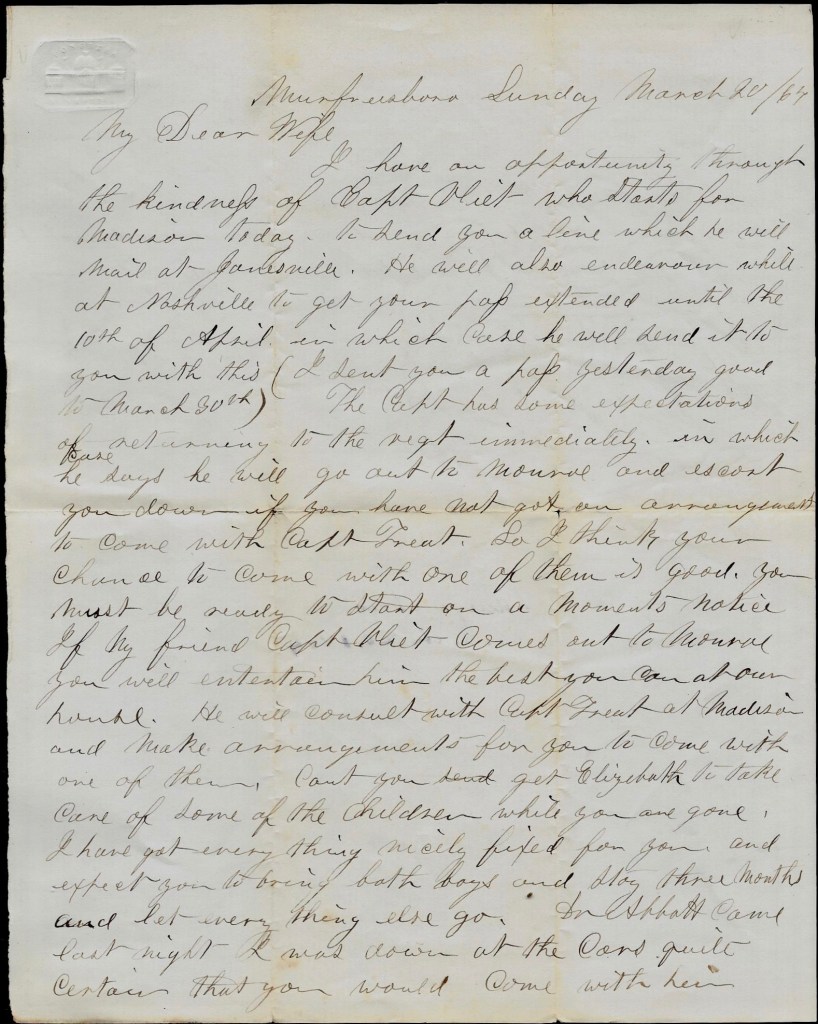 Murfreesboro Sunday March 20/64
My Dear Wife
I have an opportunity through
the kindness of Capt Vliet who starts for
Madison today. to send you a line which he will
mail at Janesville. He will also endeavour while
at Nashville to get your pass extended until the
10th of April. in which case he will send it to
you with this (I sent you a pass yesterday good
to March 30th) The Capt has some expectations
of returning to the regt immediately. in which
case
he says he will go out to Monroe and escort
you down if you have not got an arrangement
to come with Capt Treat. So I think your
chance to come with one of them is good. you
must be ready to start on a moments notice
If my friend Capt Vliet comes out to Monroe
you will entertain him the best you can at our
house. He will consult with Capt Treat at Madison
and make arrangements for you to come with
one of them, Cant you send get Elizebath to take
care of some of the children while you are gone.
I have got every thing nicely fixed for you. and
expect you to bring both boys and stay three months
and let every thing else go. Dr Abbott came
last night I was down at the cars quite
certain that you would come with him